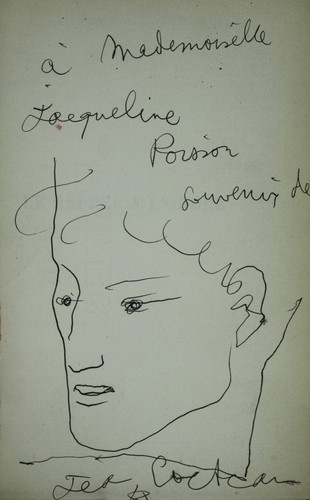 à Mademoiselle
Jacqueline
Poisson
souvenir de
Jean Cocteau